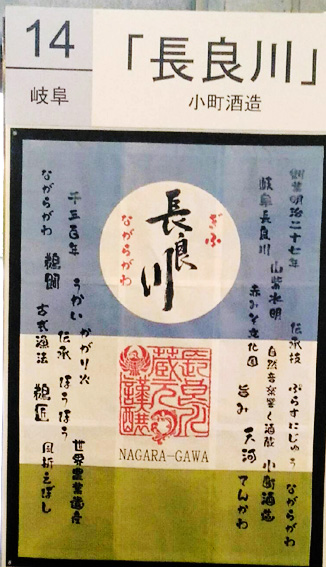 14
岐阜
「長良川」
小町酒造
創業明治二十七年 伝承技 ぷらすにじゅう ながらがわ
岐阜長良川 山紫水明 自然音楽響く酒蔵 小町酒造
赤みそ文化圏 旨み 天河 てんがわ
ぎふ
長良川
ながらがわ
長良川
蔵元
謹醸
NAGARA-GAWA
千三百年 うかい かがり火 世界農業遺産
ながらがわ 鵜飼 伝承 ほうほう 風折えぼし
古式漁法 鵜匠